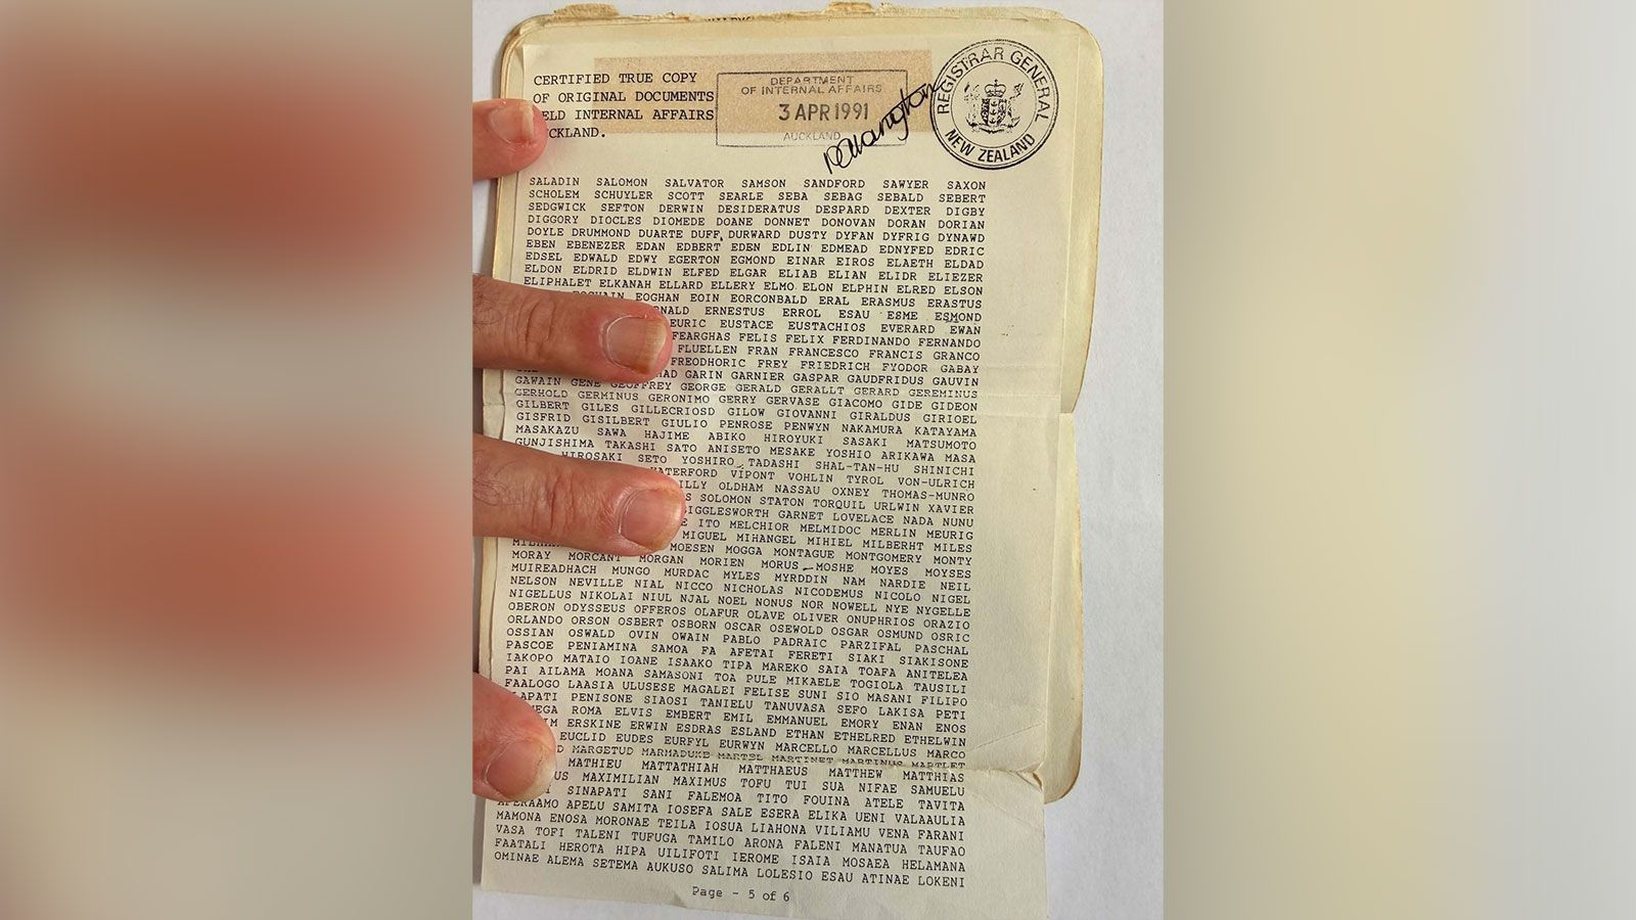 CERTIFIED TRUE COPY
OF ORIGINAL DOCUMENTS
ELD INTERNAL AFFAIRS
CKLAND.
DEPARTMENT
OF INTERNAL AFFAIRS
3 APR 1991
AUCKLAND
REGISTRAR GENERAL
NEW ZEALAND
SALADIN SALOMON SALVATOR SAMSON SANDFORD SAWYER SAXON
SCHOLEM SCHUYLER SCOTT SEARLE SEBA SEBAG SEBALD SEBERT
SEDGWICK SEFTON DERWIN DESIDERATUS DESPARD DEXTER DIGBY
DIGGORY DIOCLES DIOMEDE DOANE DONNET DONOVAN DORAN DORIAN
DOYLE DRUMMOND DUARTE DUFF DURWARD DUSTY DYFAN DYFRIG DYNAWD
EBEN EBENEZER EDAN EDBERT EDEN EDLIN EDMEAD EDNYFED EDRIC
EDSEL EDWALD EDWY EGERTON EGMOND EINAR EIROS ELAETH ELDAD
ELDON ELDRID ELDWIN ELFED ELGAR ELIAB ELIAN ELIDR ELIEZER
ELIPHALET ELKANAH ELLARD ELLERY ELMO ELON ELPHIN ELRED ELSON
EOGHAN EOIN EORCONBALD ERAL ERASMUS ERASTUS
NALD ERNESTUS ERROL ESAU ESME ESMOND
EURIC EUSTACE EUSTACHIOS EVERARD EWAN
FEARGHAS FELIS FELIX FERDINANDO FERNANDO
FLUELLEN FRAN FRANCESCO FRANCIS GRANCO
FREODHORIC FREY FRIEDRICH FYODOR GABAY
HAD GARIN GARNIER GASPAR GAUDFRIDUS GAUVIN
GAWAIN GENE GEOFFREY GEORGE GERALD GERALLT GERARD GEREMINUS
GERHOLD GERMINUS GERONIMO GERRY GERVASE GIACOMO GIDE GIDEON
GILBERT GILES GILLECRIOSD GILOW GIOVANNI GIRALDUS GIRIOEL
GISFRID GISILBERT GIULIO PENROSE PENWYN NAKAMURA KATAYAMA
MASAKAZU SAWA HAJIME ABIKO HIROYUKI SASAKI MATSUMOTO
GUNJISHIMA TAKASHI SATO ANISETO MESAKE YOSHIO ARIKAWA MASA
HIROSAKI SETO YOSHIRO TADASHI SHAL-TAN-HU SHINICHI
WATERFORD VIPONT VOHLIN TYROL VON-ULRICH
ILLY OLDHAM NASSAU OXNEY THOMAS-MUNRO
S SOLOMON STATON TORQUIL URLWIN XAVIER
BIGGLESWORTH GARNET LOVELACE NADA NUNU
E ITO MELCHIOR MELMIDOC MERLIN MEURIG
MIGUEL MIHANGEL MIHIEL MILBERHT MILES
MOESEN MOGGA MONTAGUE MONTGOMERY MONTY
MORAY MORCANT MORGAN MORIEN MORUS MOSHE MOYES MOYSES
MUIREADHACH MUNGO MURDAC MYLES MYRDDIN NAM NARDIE NEIL
NELSON NEVILLE NIAL NICCO NICHOLAS NICODEMUS NICOLO NIGEL
NIGELLUS NIKOLAI NIUL NJAL NOEL NONUS NOR NOWELL NYE NYGELLE
OBERON ODYSSEUS OFFEROS OLAFUR OLAVE OLIVER ONUPHRIOS ORAZIO
ORLANDO ORSON OSBERT OSBORN OSCAR OSEWOLD OSGAR OSMUND OSRIC
OSSIAN OSWALD OVIN OWAIN PABLO PADRAIC PARZIFAL PASCHAL
PASCOE PENIAMINA SAMOA FA AFETAI FERETI SIAKI SIAKISONE
IAKOPO MATAIO IOANE ISAAKO TIPA MAREKO SAIA TOAFA ANITELEA
PAI AILAMA MOANA SAMASONI TOA PULE MIKAELE TOGIOLA TAUSILI
FAALOGO LAASIA ULUSESE MAGALEI FELISE SUNI SIO MASANI FILIPO
LAPATI PENISONE SIAOSI TANIELU TANUVASA SEFO LAKISA PETI
VEGA ROMA ELVIS EMBERT EMIL EMMANUEL EMORY ENAN ENOS
IM ERSKINE ERWIN ESDRAS ESLAND ETHAN ETHELRED ETHELWIN
EUCLID EUDES EURFYL EURWYN MARCELLO MARCELLUS MARCO
D MARGETUD MARMADUKE MARTEL MARTINET MARTINUS MARTLET
MATHIEU MATTATHIAH MATTHAEUS MATTHEW MATTHIAS
US MAXIMILIAN MAXIMUS TOFU TUI SUA NIFAE SAMUELU
I SINAPATI SANI FALEMOA TITO FOUINA ATELE TAVITA
APERAAMO APELU SAMITA IOSEFA SALE ESERA ELIKA UENI VALAAULIA
MAMONA ENOSA MORONAE TEILA IOSUA LIAHONA VILIAMU VENA FARANI
VASA TOFI TALENI TUFUGA TAMILO ARONA FALENI MANATUA TAUFAO
FAATALI HEROTA HIPA UILIFOTI IEROME ISAIA MOSAEA HELAMANA
OMINAE ALEMA SETEMA AUKUSO SALIMA LOLESIO ESAU ATINAE LOKENI
Page - 5 of 6